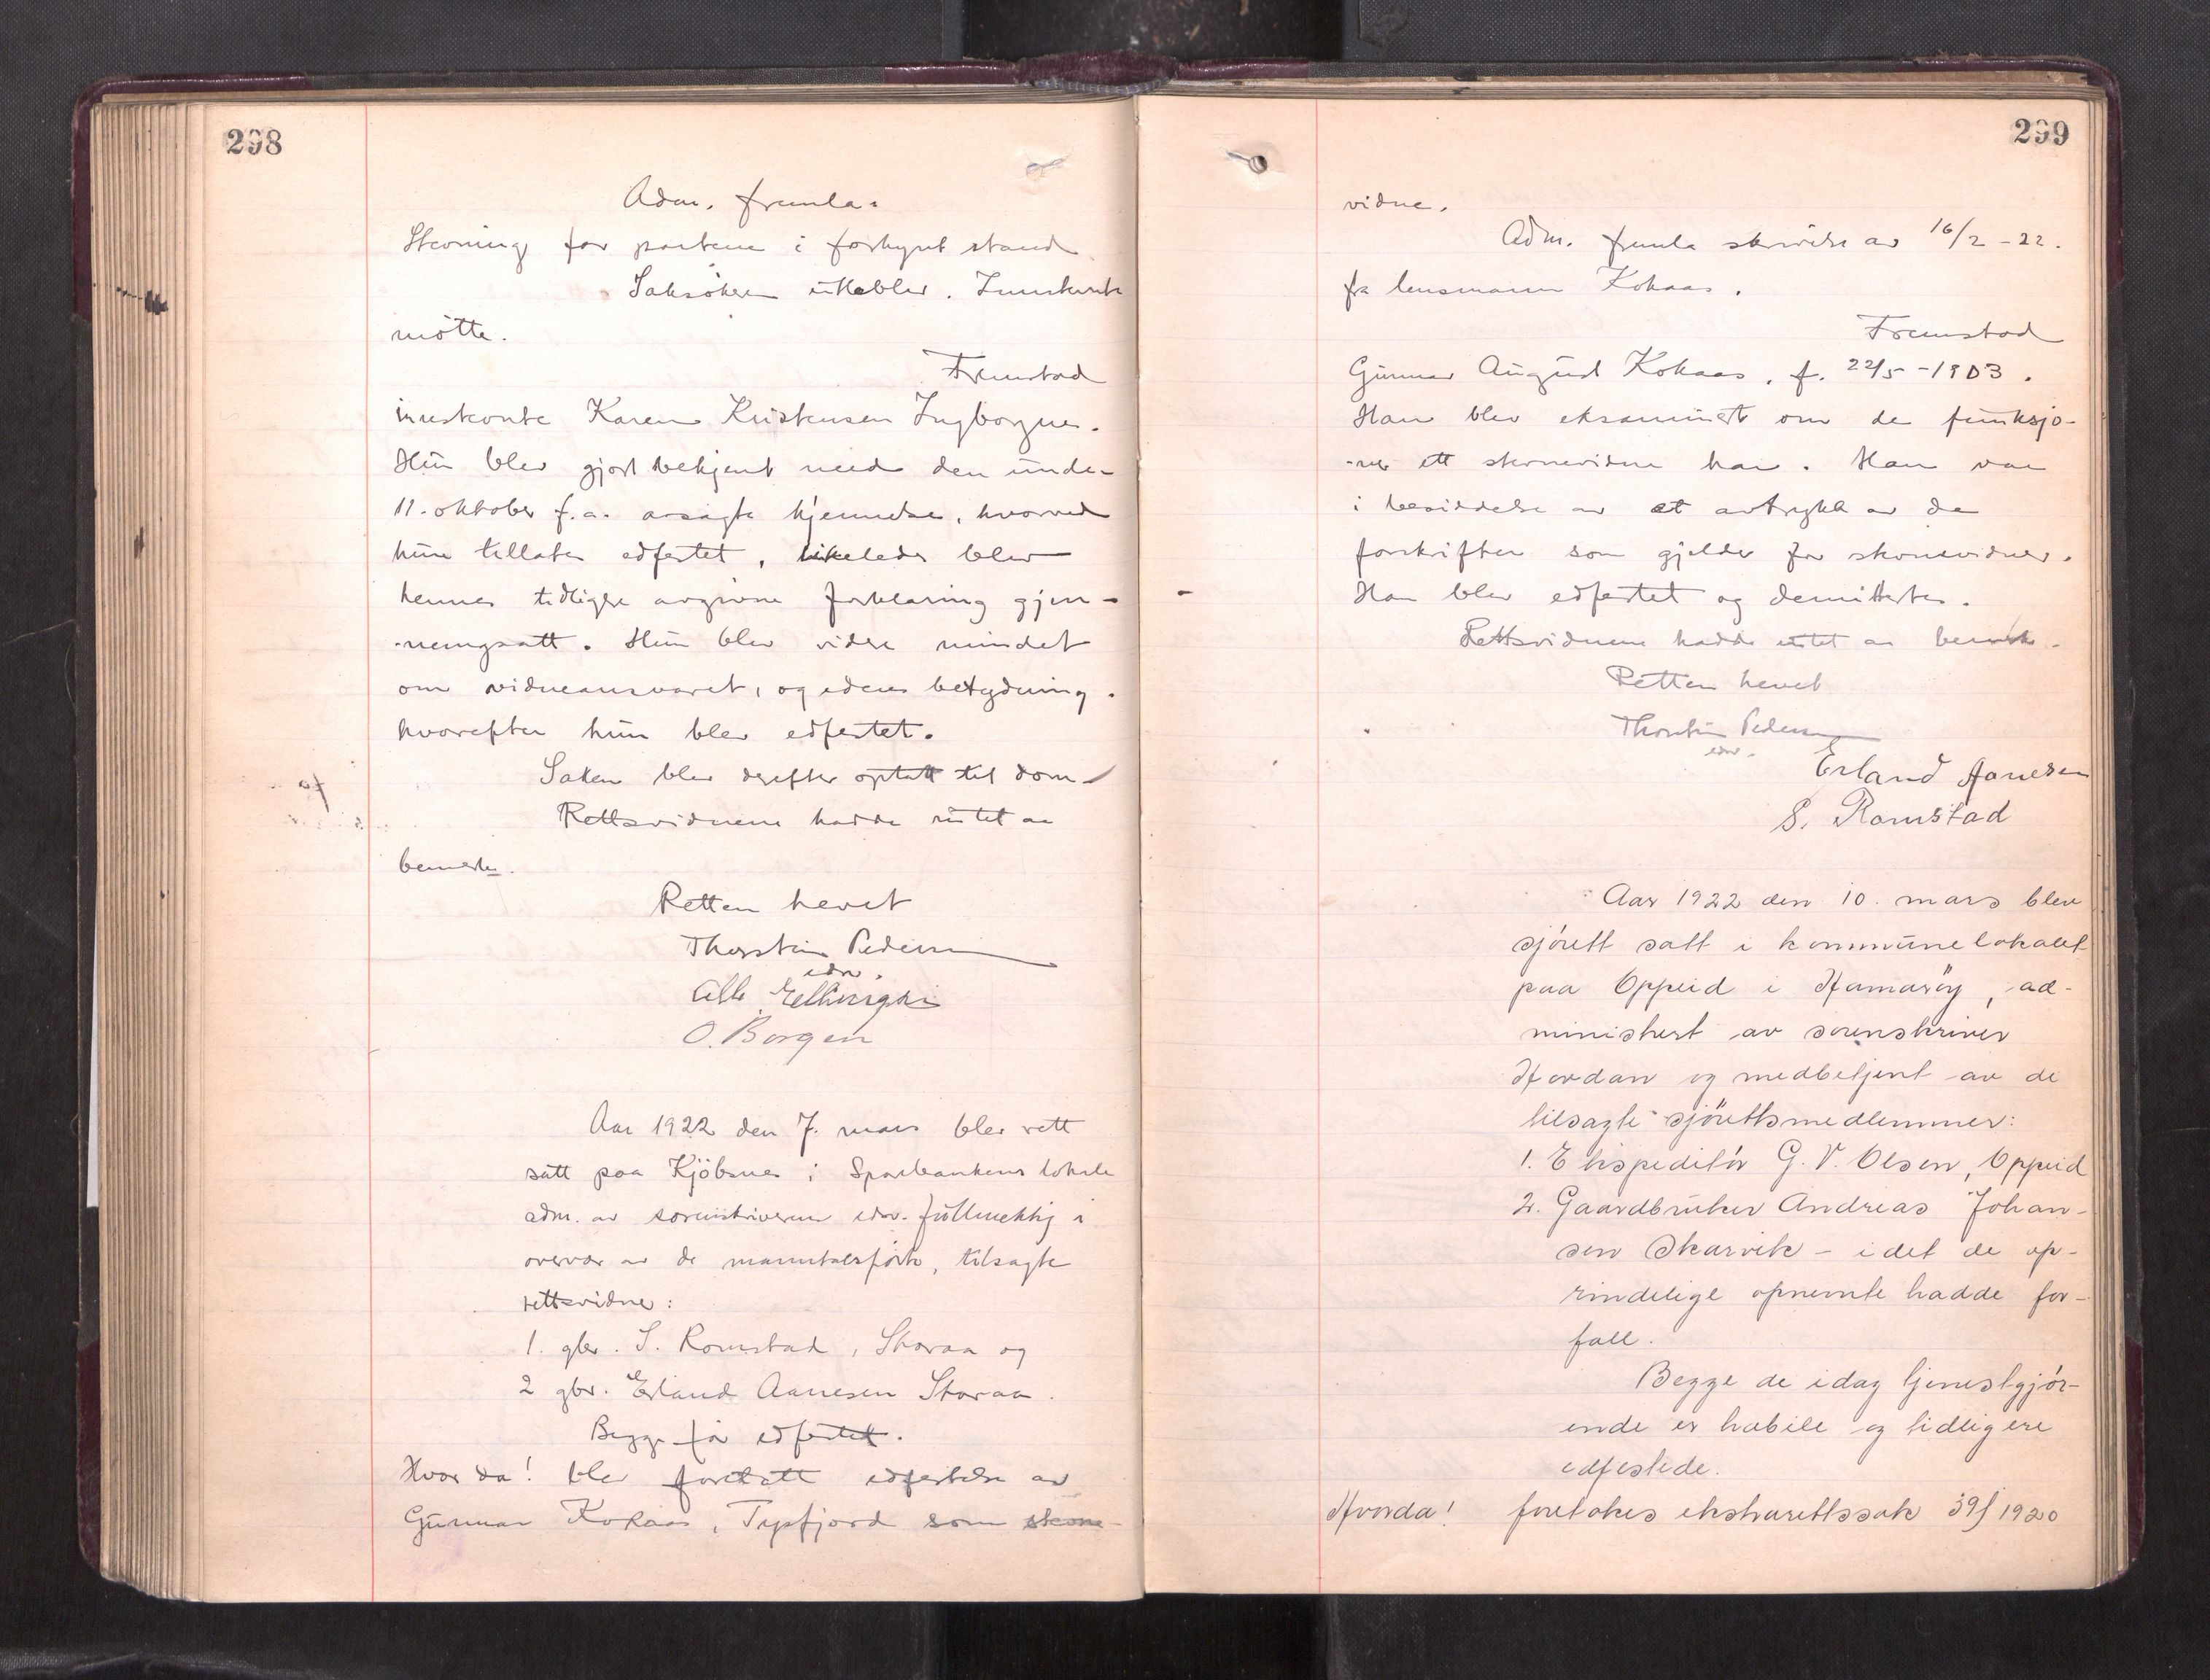 298
Adm. fremla:
Stevning for partene i forkynt stand
Saksökeren uteblev. Innstevnte
mötte.
Fremstod
innstevnte Karen Kristensen Ingborgnes.
Hun blev gjort bekjent med den under
11. oktober f.a. avsagte kjennelse, hvorved
hun tillates edfestet, likeledes blev
hennes tidligere avgivne forklaring gjen-
nemgaatt. Hun blev videre mindet
om vidneansvaret, og edens betydning.
hvorefter hun blev edfestet.
Saken blev derefter optatt til dom.
Rettsvidnene hadde intet aa
bemerke.
Retten hevet
Thorstein Pedersen
edsv.
Alb.
O. Borgen
Aar 1922 den 7. mars blev rett
satt paa Kjöbsnes i Sparebankens lokale
adm. av sorenskriverens edsv. fullmektig i
overvær av de manntalsförte, tilsagte
rettsvidner:
1. gbr. S. Romstad, Storaa og
2 gbr. Erland Aanesen Storaa.
Begge för edfestet.
Hvor da! blev foretatt edfestelse av
Gunnar Kokaas, Tysfjord som skjönne-
299
vidne.
Adm. fremla skrivelse av 16/2-22.
fra lensmann Kokaas.
Fremstod
Gunnar August Kokaas, f. 22/5-1903.
Han blev eksaminert om de funksjo-
-ner ett skjönnevidne har. Han var
i besiddelse av et avtrykk av de
forskrifter som gjelder for skjönnevidner.
Han blev edfestet og demittertes.
Rettsvidnene hadde intet aa bemerke.
Retten hevet
Thorstein Pedersen
edsv.
Erland Aanesen
S. Romstad
Aar 1922 den 10. mars blev
sjörett satt i kommunelokalet
paa Oppeid i Hamaröy, ad-
ministrert av sorenskriver
Hordan og medbetjent av de
tilsagte sjörettsmedlemmer:
1. Ekspeditör G. V. Olsen, Oppeid
2. Gaardbruker Andreas Johan-
sen Skarvik - idet de op-
rindelige opnevnte hadde for-
fall.
Begge de idag tjenestgjör-
ende er habile og tidligere
edfestede.
Hvorda! foretokes ekstrarettssak 39/1920